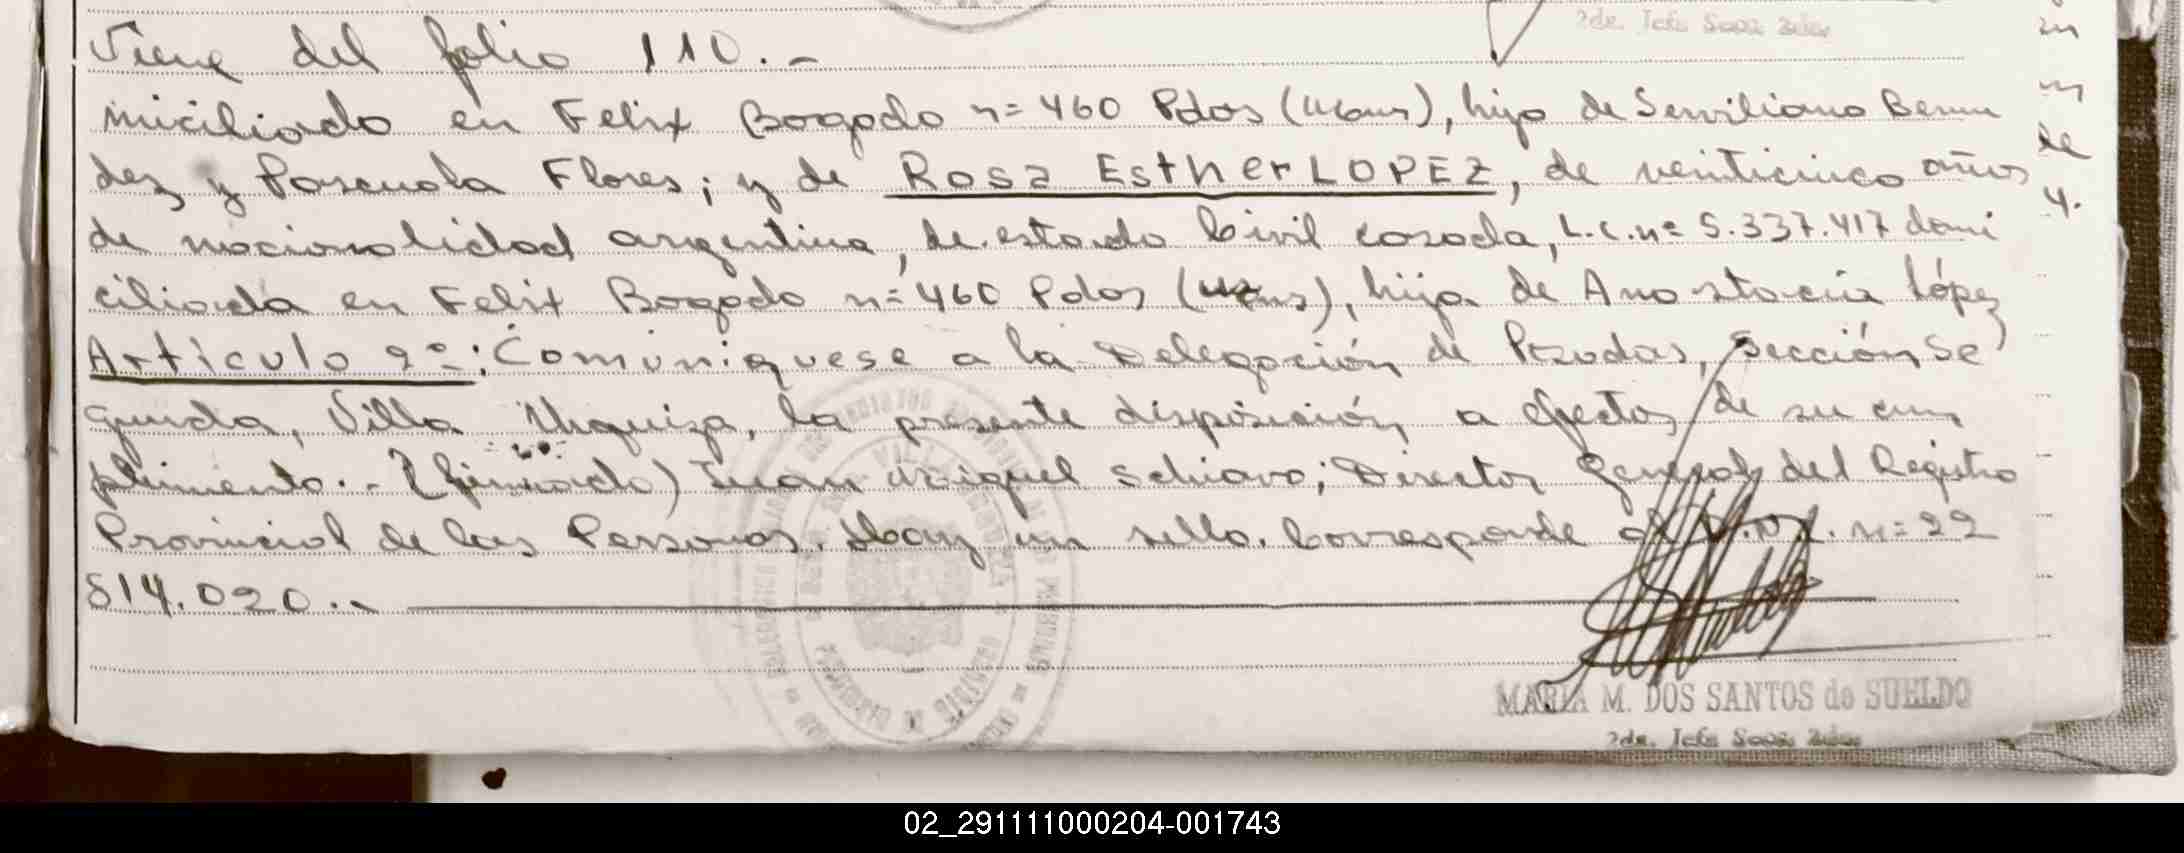 2da. Jefa Secc. 2da.
Viene del folio 110.-
miciliado en Felix Bogado n= 460 Pdos (Mnes), hijo de Serviliano Bermu
dez y Pascuala Flores; y de Rosa Esther LOPEZ, de veinticinco años
de nacionalidad argentina, de estado Civil casada, L.C. nº 5.337.417 domi
ciliada en Felix Bogado n= 460 Pdos (Mnes), hija de Anastacia López
Artículo 2º: Comuníquese a la Delegación de Posadas, Sección Se
gunda, Villa Urquiza, la presente disposición a efectos de su cum
plimento.- (firmado) Juan Miguel Schiavo; Director General del Registro
Provincial de las Personas. Hay un sello. Corresponde al n= 22
814.020.-
MARIA M. DOS SANTOS de SUELDO
2da. Jefa Secc. 2da.
02_291111000204-001743